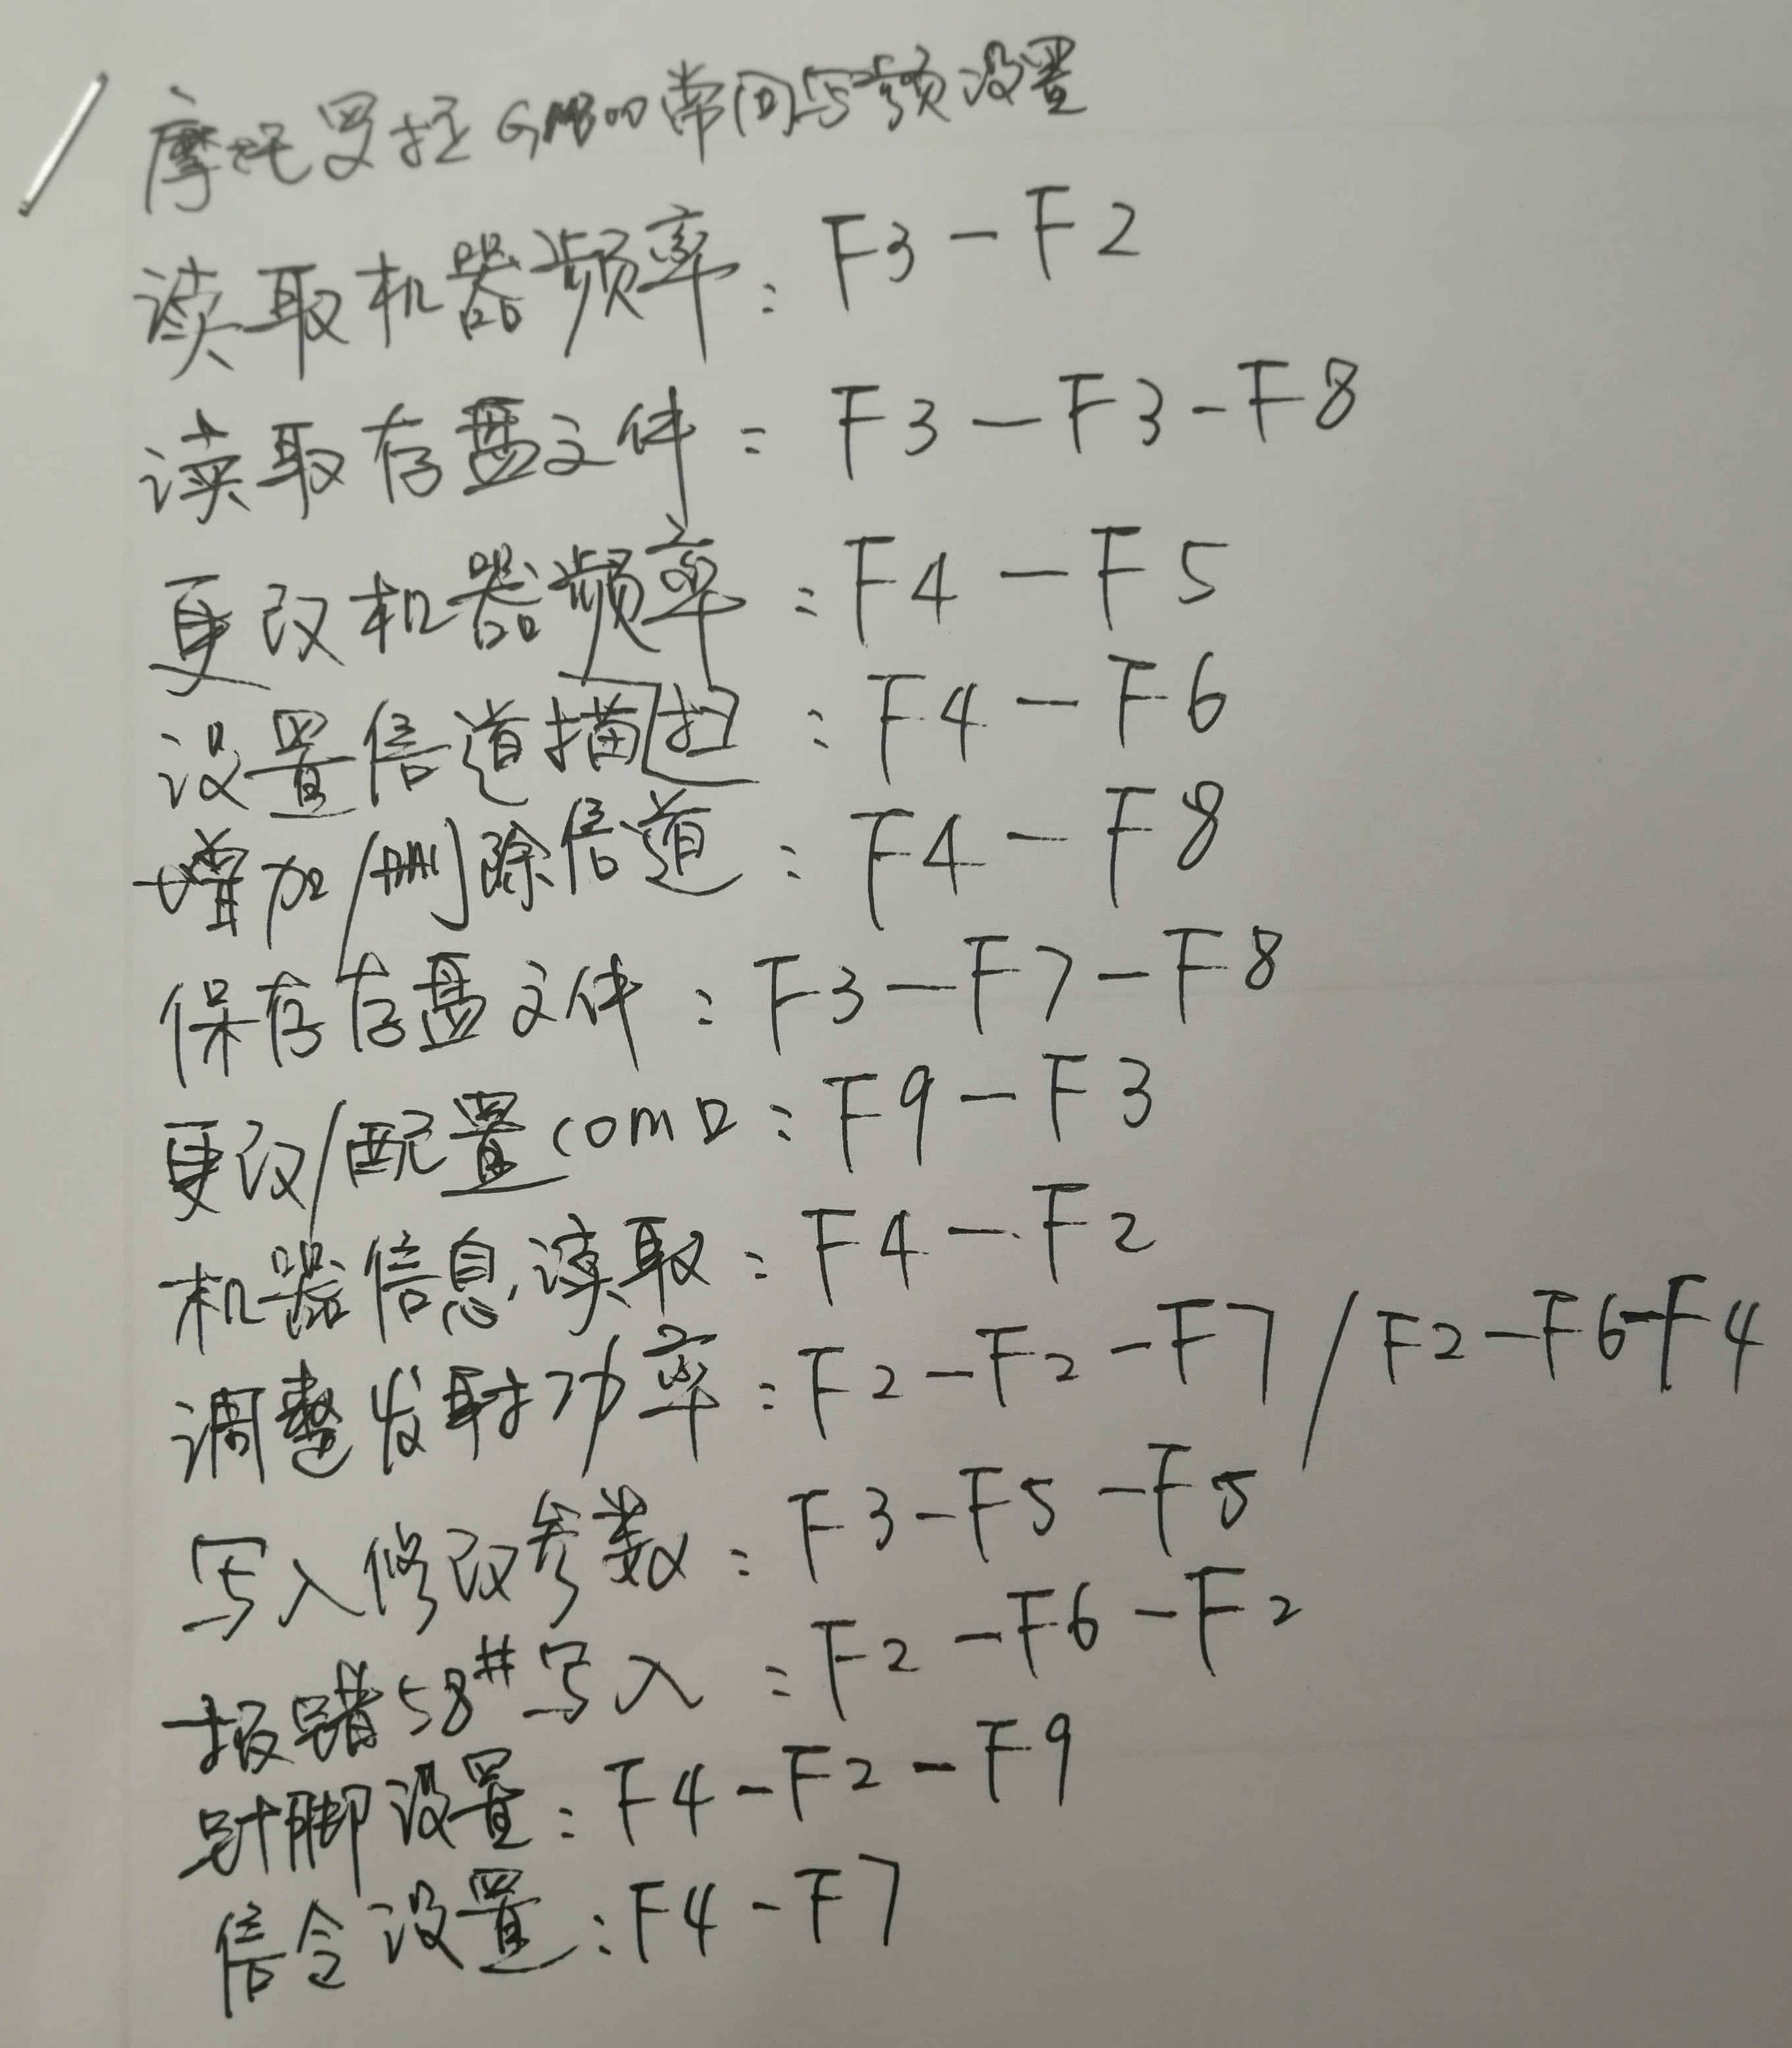 摩托罗拉GM300常用写频设置
读取机器频率：F3-F2
读取存盘文件：F3-F3-F8
更改机器频率：F4-F5
设置信道描扫：F4-F6
增加/删除信道：F4-F8
保存存盘文件：F3-F7-F8
更改/配置com口：F9-F3
机器信息读取：F4-F2
调整发射功率：F2-F2-F7/F2-F6-F4
写入修改参数：F3-F5-F5
报错58#写入：F2-F6-F2
针脚设置：F4-F2-F9
信令设置：F4-F7